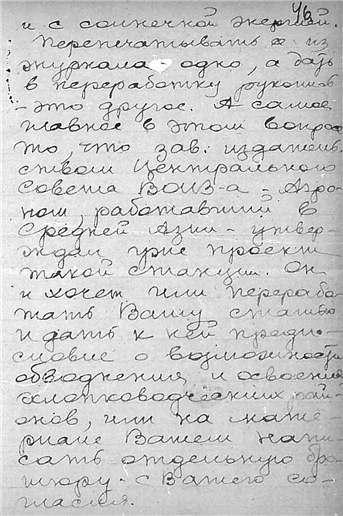 46
и с солнечной энергией.
Перепечатывать ее из
журнала - одно, а дать
в переработку рукопись
- это другое. А самое
главное в этом вопро
то, что зав. издатель
ством Центрального
Совета ВОИЗ-а - Агро-
ном, работавший в
Средней Азии - утвер-
ждал уже проект
такой станции. Он
и хочет или перерабо-
тать Вашу статью
и дать к ней преди-
словие о возможности
обводнения и освоения
хлопководческих рай-
онов, или на мате-
риале Вашем напи-
сать отдельную бро-
шюру. с Вашего со-
гласия.